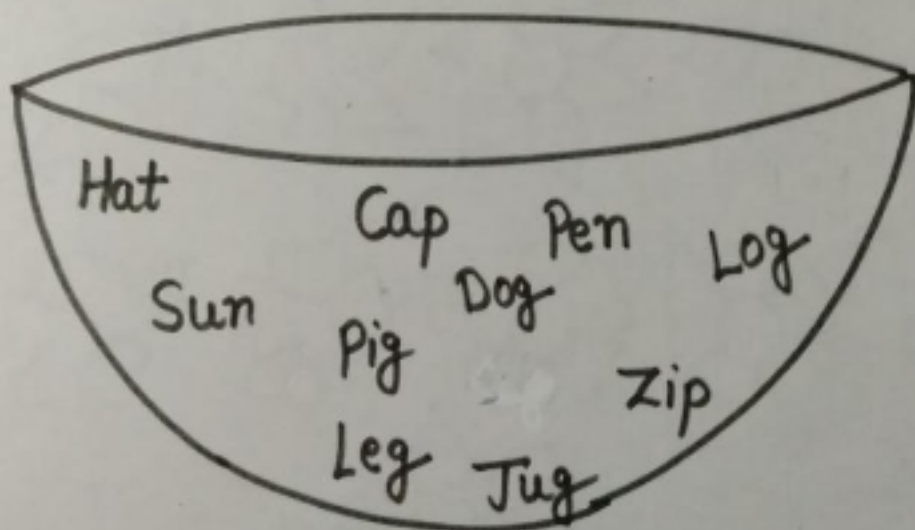 Hat
Cap
Pen
Log
Sun
Dog
Pig
Zip
Leg
Jug